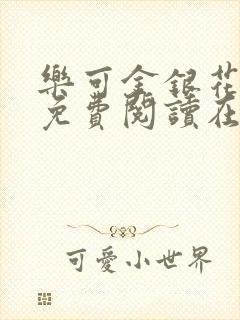 樂可金銀花
免費閱讀在
可愛小世界